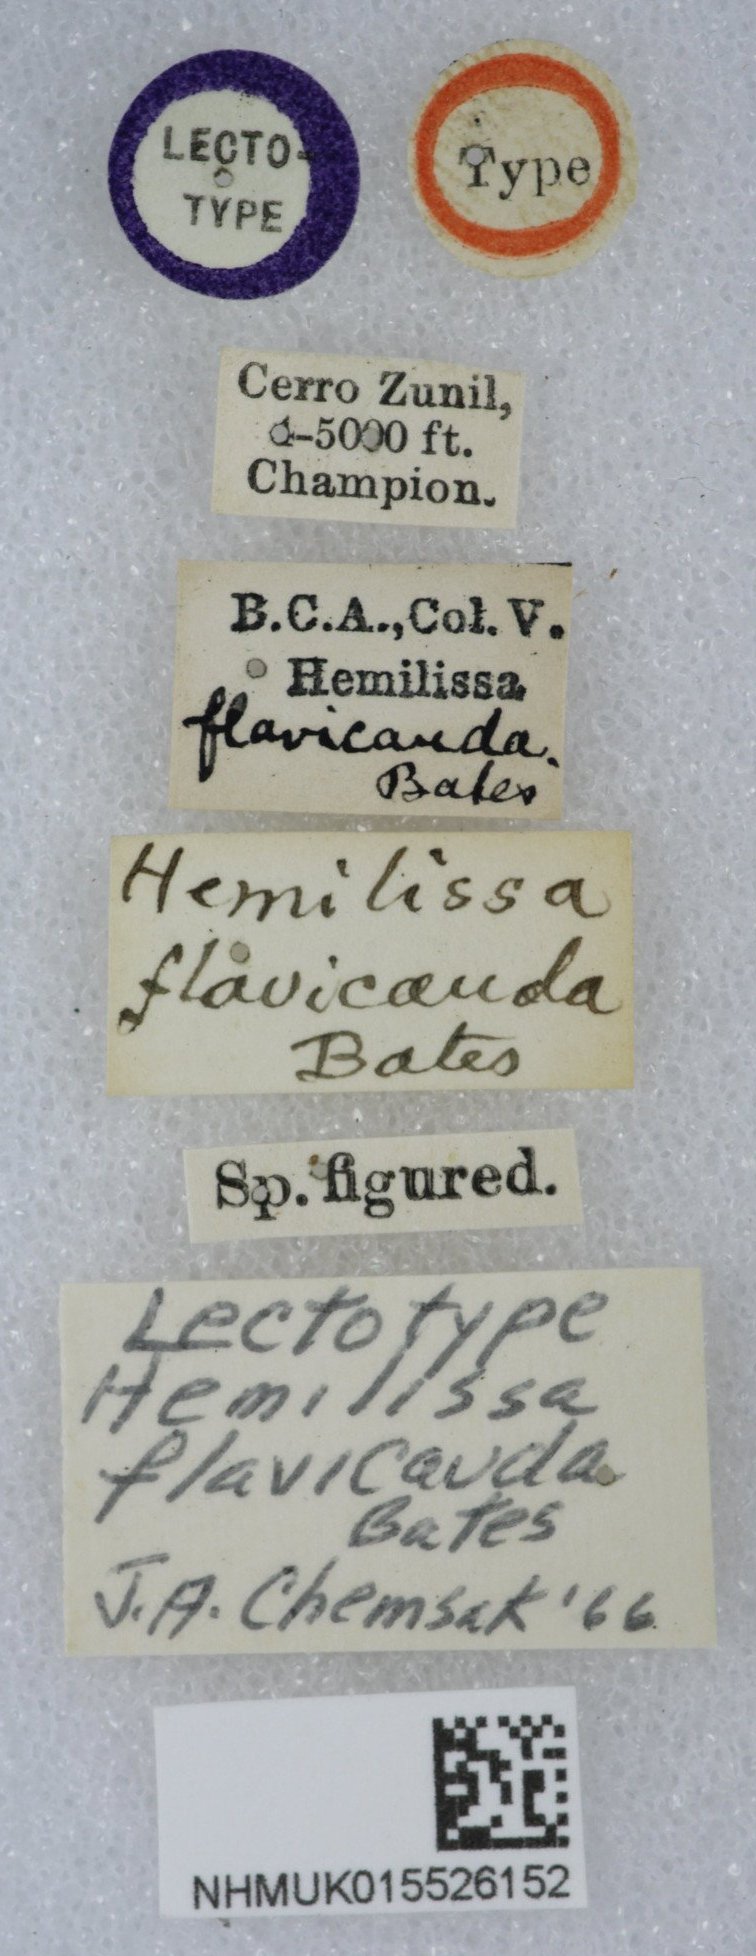 LECTO-
TYPE
Type
Cerro Zunil,
4-5000 ft.
Champion.
B.C.A., Col. V.
Hemilissa
flavicauda.
Bates
Hemilissa
flavicauda
Bates
Sp. figured.
Lectotype
Hemilissa
flavicauda
Bates
J.A. Chemsak '66
NHMUK015526152